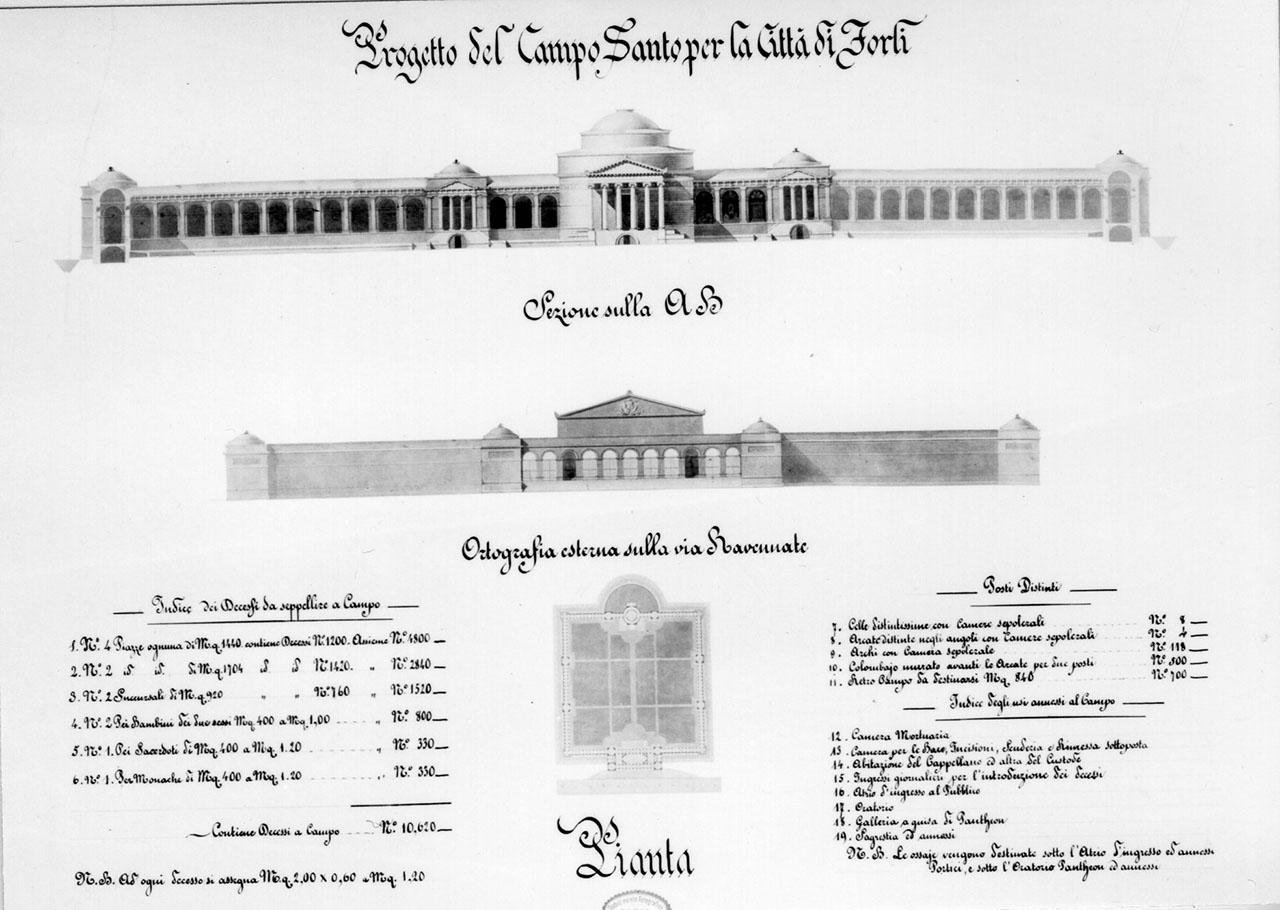 Progetto del Campo Santo per la Città di Forlì
Sezione sulla A B
Ortografia esterna sulla via Ravennate
Indice dei Decessi da seppellire a Campo
1. N.º 4 Piazze ognuna di M.q. 1440 contiene Decessi N.º 1200. Assieme N.º 4800
2. N.º 2 id. id. di M.q. 1704 id. id. N.º 1420. „ N.º 2840
3. N.º 2 Succursali di M.q. 920 „ „ N.º 760 „ N.º 1520
4. N.º 2 Pei Bambini dei due sessi M.q. 400 a M.q. 1,00 „ N.º 800
5. N.º 1. Pei Sacerdoti di M.q. 400 a M.q. 1.20 „ N.º 330
6. N.º 1. Per Monache di M.q. 400 a M.q. 1.20 „ N.º 330
Contiene Decessi a Campo N.º 10,620
N.B. Ad ogni decesso si assegna M.q. 2,00 x 0,60 = M.q. 1.20
Pianta
Posti Distinti
7. Celle distintissime con Camere sepolcrali N.º 8
8. Arcate distinte negli angoli con Camere sepolcrali N.º 4
9. Archi con Camera sepolcrale N.º 118
10. Colombajo murato avanti le Arcate per due posti N.º 500
11. Retro Campo da destinarsi M.q. 840 N.º 700
Indice degli usi annessi al Campo
12. Camera Mortuaria
13. Camera per le Bare, Incisioni, Scuderia e Rimessa sottoposta
14. Abitazione del Cappellano ed altra del Custode
15. Ingressi giornalieri per l'introduzione dei decessi
16. Atrio d'ingresso al Pubblico
17. Oratorio
18. Galleria a guisa di Pantheon
19. Sagrestia ed annessi
N.B. Le ossaje vengono destinate sotto l'Atrio d'ingresso ed annessi
Portici, e sotto l'Oratorio Pantheon ed annessi